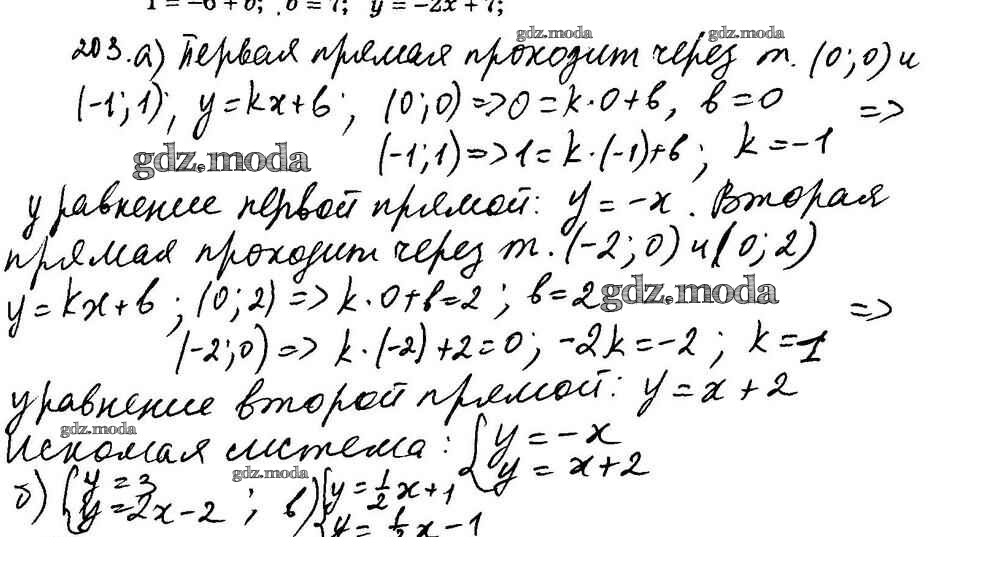 1 = -6 + b; b = 7; y = -2x + 7;
gdz.moda gdz.moda
203. а) Первая прямая проходит через т. (0; 0) и
(-1; 1); y = kx + b; (0; 0) => 0 = k · 0 + b, b = 0 =>
(-1; 1) => 1 = k · (-1) + b; k = -1
gdz.moda
уравнение первой прямой: y = -x. Вторая
прямая проходит через т. (-2; 0) и (0; 2)
y = kx + b; (0; 2) => k · 0 + b = 2; b = 2 =>
gdz.moda
(-2; 0) => k · (-2) + 2 = 0; -2k = -2; k = 1
уравнение второй прямой: y = x + 2
gdz.moda
Искомая система: { y = -x
y = x + 2
gdz.moda
б) { y = 3
y = 2x - 2 ; в) { y = 1/2 x + 1
y = 1/2 x - 1